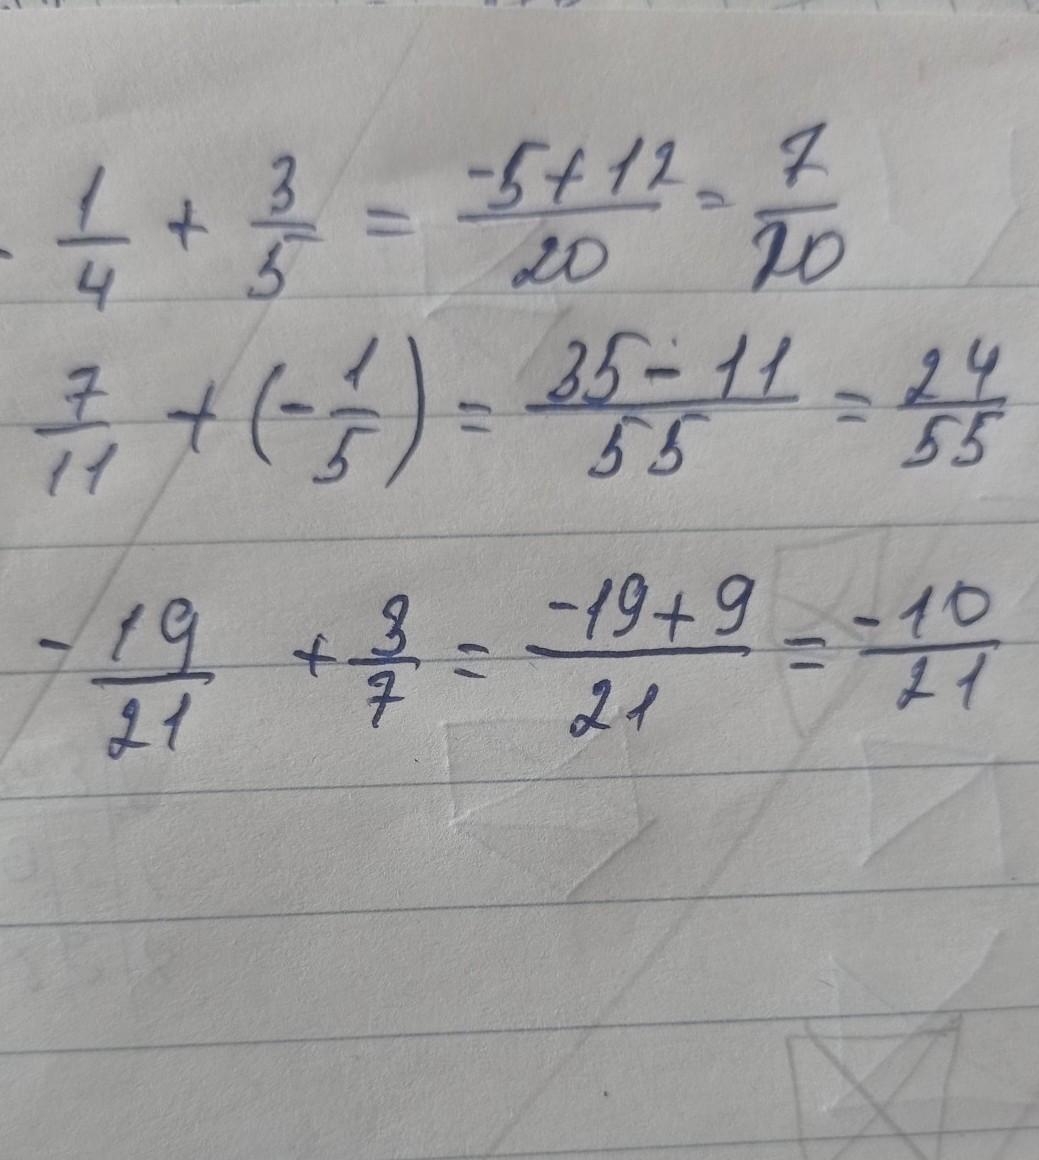 - 1/4 + 3/5 = (-5+12)/20 = 7/20
7/11 + (-1/5) = (35-11)/55 = 24/55
-19/21 + 3/7 = (-19+9)/21 = -10/21